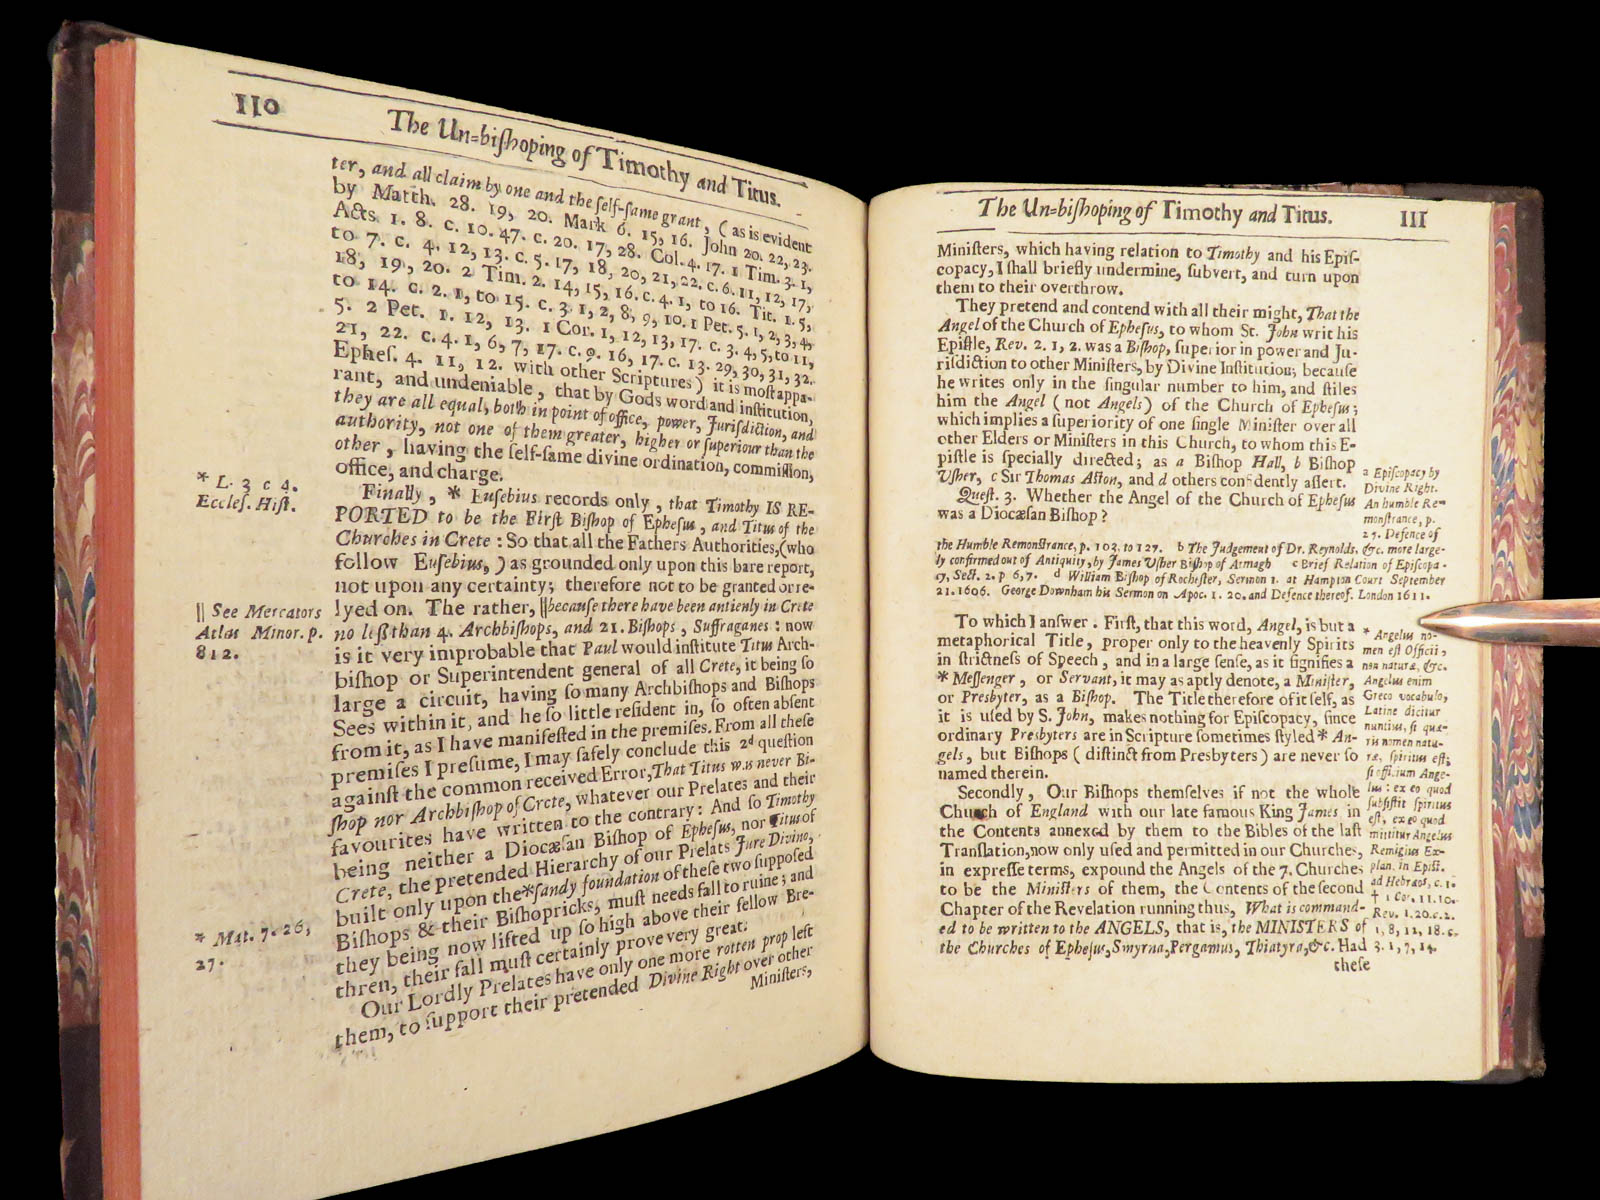 110
The Un-bishoping of Timothy and Titus.
ter, and all claim by one and the self-same grant, (as is evident
by Matth. 28. 19, 20. Mark 6. 15, 16. John 20. 22, 23.
Acts 1. 8. c. 10. 47. c. 20. 17, 28. Col. 4. 17. 1 Tim. 3. 1,
to 7. c. 4. 12, 13. c. 5. 17, 18, 20, 21, 22. c. 6. 11, 12, 17,
18, 19, 20. 2 Tim. 2. 14, 15, 16. c. 4. 1, to 16. Tit. 1. 5,
to 14. c. 2. 1, to 15. c. 3. 1, 2, 8, 9, 10. 1 Pet. 5. 1, 2, 3, 4,
5. 2 Pet. 1. 12, 13. 1 Cor. 1, 12, 13, 17. c. 3. 4, 5, to 11,
21, 22. c. 4. 1, 6, 7, 17. c. 9. 16, 17. c. 13. 29, 30, 31, 32.
Ephes. 4. 11, 12. with other Scriptures) it is most appa-
rant, and undeniable, that by Gods word and institution,
they are all equal, both in point of office, power, Jurisdiction, and
authority, not one of them greater, higher or superiour than the
other, having the self-same divine ordination, commission,
office, and charge.
* L. 3 c 4.
Eccles. Hist.
Finally, * Eusebius records only, that Timothy IS RE-
PORTED to be the First Bishop of Ephesus, and Titus of the
Churches in Crete: So that all the Fathers Authorities, (who
follow Eusebius,) as grounded only upon this bare report,
not upon any certainty; therefore not to be granted or re-
lyed on. The rather, || because there have been antienly in Crete
no less than 4. Archbishops, and 21. Bishops, Suffraganes: now
is it very improbable that Paul would institute Titus Arch-
bishop or Superintendent general of all Crete, it being so
large a circuit, having so many Archbishops and Bishops
Sees within it, and he so little resident in, so often absent
from it, as I have manifested in the premises. From all these
premises I presume, I may safely conclude this 2d question
against the common received Error, That Titus was never Bi-
shop nor Archbishop of Crete, whatever our Prelates and their
favourites have written to the contrary: And so Timothy
being neither a Diocæsan Bishop of Ephesus, nor Titus of
Crete, the pretended Hierarchy of our Prelats Jure Divino,
built only upon the * sandy foundation of these two supposed
Bishops & their Bishopricks, must needs fall to ruine; and
they being now lifted up so high above their fellow Bre-
thren, their fall must certainly prove very great.
|| See Mercators
Atlas Minor. p.
812.
* Mat. 7. 26,
27.
Our Lordly Prelates have only one more rotten prop left
them, to support their pretended Divine Right over other
Ministers,
The Un-bishoping of Timothy and Titus.
111
Ministers, which having relation to Timothy and his Epis-
copacy, I shall briefly undermine, subvert, and turn upon
them to their overthrow.
They pretend and contend with all their might, That the
Angel of the Church of Ephesus, to whom St. John writ his
Epistle, Rev. 2. 1, 2. was a Bishop, superior in power and Ju-
risdiction to other Ministers, by Divine Institution; because
he writes only in the singular number to him, and stiles
him the Angel (not Angels) of the Church of Ephesus;
which implies a superiority of one single Minister over all
other Elders or Ministers in this Church, to whom this E-
pistle is specially directed; as a Bishop Hall, b Bishop
Usher, c Sir Thomas Aston, and d others confidently assert.
Quest. 3. Whether the Angel of the Church of Ephesus
was a Diocæsan Bishop?
a Episcopacy by
Divine Right.
An humble Re-
monstrance, p.
27. Defence of
the Humble Remonstrance, p. 103. to 127. b The Judgement of Dr. Reynolds, &c. more large-
ly confirmed out of Antiquity, by James Usher Bishop of Armagh c Brief Relation of Episcopa-
cy, Sect. 2. p 6, 7. d William Bishop of Rochester, Sermon 1. at Hampton Court September
21. 1606. George Downham his Sermon on Apoc. 1. 20. and Defence thereof. London 1611.
To which I answer. First, that this word, Angel, is but a
metaphorical Title, proper only to the heavenly Spirits
in strictness of Speech, and in a large sense, as it signifies a
* Messenger, or Servant, it may as aptly denote, a Minister,
or Presbyter, as a Bishop. The Title therefore of it self, as
it is used by S. John, makes nothing for Episcopacy, since
ordinary Presbyters are in Scripture sometimes styled * An-
gels, but Bishops (distinct from Presbyters) are never so
named therein.
Secondly, Our Bishops themselves if not the whole
Church of England with our late famous King James in
the Contents annexed by them to the Bibles of the last
Translation, now only used and permitted in our Churches,
in expresse terms, expound the Angels of the 7. Churches
to be the Ministers of them, the Contents of the second
Chapter of the Revelation running thus, What is command-
ed to be written to the ANGELS, that is, the MINISTERS of
the Churches of Ephesus, Smyrna, Pergamus, Thiatyra, &c. Had
these
* Angelus no-
men est Officii,
non naturæ, &c.
Angelus enim
Greco vocabulo,
Latine dicitur
nuntius, si quæ-
ris nomen natu-
ræ, spiritus est;
si officium Ange-
lus: ex eo quod
subsistit spiritus
est, ex eo quod
mittitur Angelus
Remigius Ex-
plan. in Epist.
ad Hebræos, c. 1.
† 1 Cor. 11. 10.
Rev. 1. 20. c. 2.
1, 8, 12, 18. c.
3. 1, 7, 14.